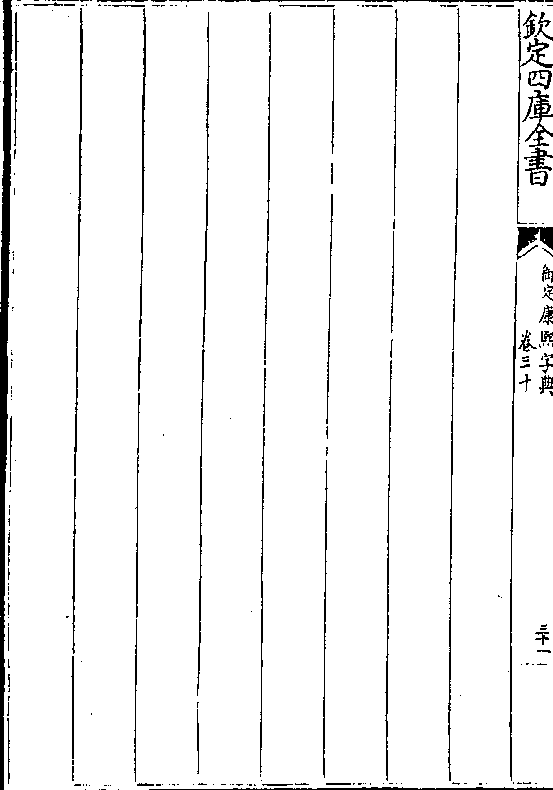 欽定四庫全書
御定康熙字典
卷三十
三十一